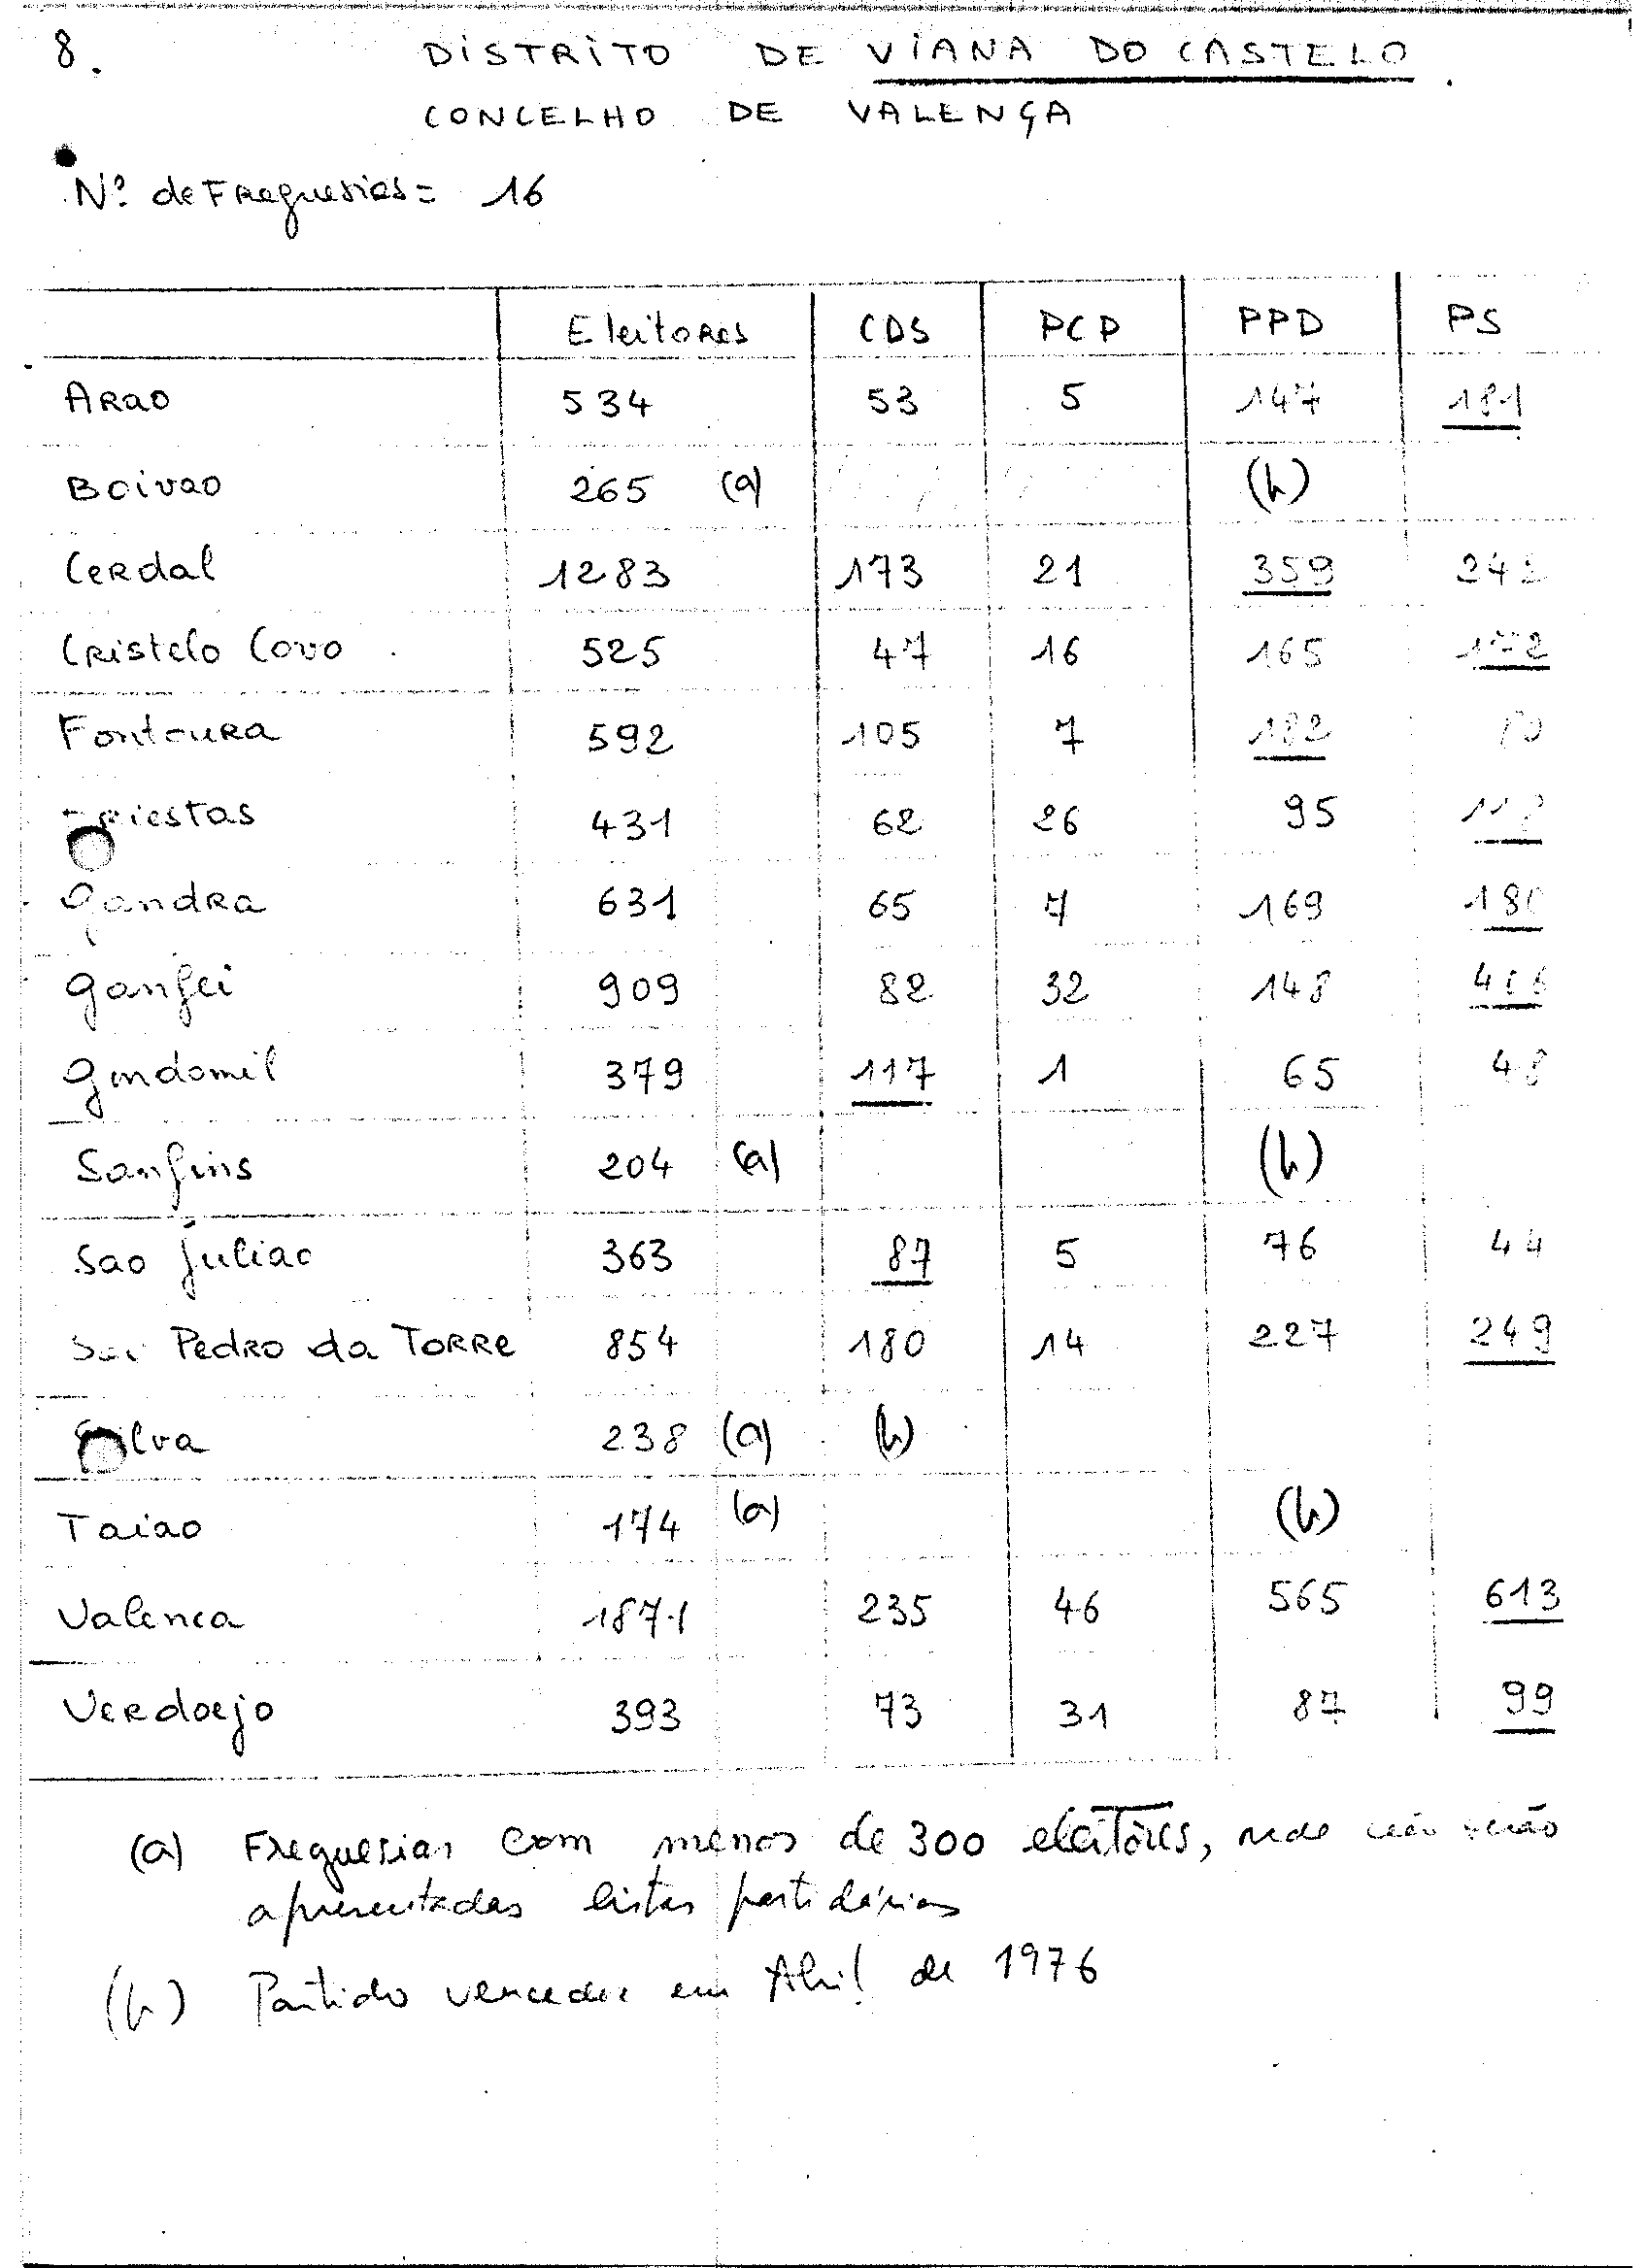 8.
DISTRITO DE VIANA DO CASTELO.
CONCELHO DE VALENÇA
Nº de Freguesias = 16
Eleitores CDS PCP PPD PS
Arao 534 53 5 147 181
Boivao 265 (a) (b)
Cerdal 1283 173 21 359
Cristelo Covo 525 47 16 165 172
Fontoura 592 105 7 182
431 62 26 95
Gandra 631 65 7 169 180
Ganfei 909 82 32 148
Gondomil 379 117 1 65 48
Sanfins 204 (a) (b)
Sao Juliao 363 87 5 76 44
Pedro da Torre 854 180 14 227 249
238 (a) (b)
Taiao 174 (a) (b)
Valenca 1871 235 46 565 613
Verdoejo 393 73 31 87 99
(a) Freguesias com menos de 300 eleitores,
apresentadas listas partidárias
(b) Partido vencedor em Abril de 1976